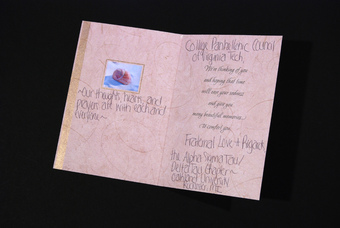 ~Our thoughts, hearts, and
prayers are with each and
everyone~
College Panhellenic Council
of Virginia Tech,
We're thinking of you
and hoping that time
will ease your sadness
and give you
many beautiful memories
to comfort you.
Fraternal Love +
the Alpha Sigma Tau/
Delta Tau Chapter~
University